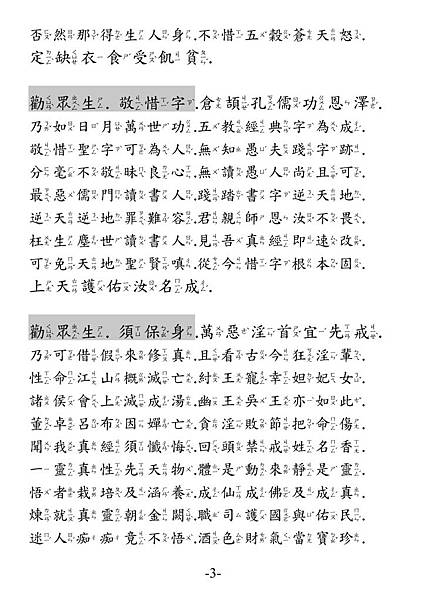 否然那得生人身.不惜五穀蒼天怒.
定缺衣食受飢貧.
勸眾生.敬惜字.倉頡孔儒功恩澤.
乃如日月萬世功.五教經典字為成.
敬惜聖字可為人.無知愚夫踐字跡.
分毫不敬昧良心.無讀愚人尚且可.
最惡儒門讀書人.踐踏書字逆天地.
逆天逆地罪難容.君親師恩汝不畏.
枉生塵世讀書人.見吾真經即速改.
可免天地聖賢嗔.從今惜字根本固.
上天護佑汝名成.
勸眾生.須保身.萬惡淫首宜先戒.
乃可借假來修真.且看古今狂淫輩.
性命江山概滅亡.紂王寵幸妲妃女.
諸侯會上滅成湯.幽王吳王亦如此.
董卓呂布因嬋亡.貪淫敗節把命傷.
聞我真經須懺悔.回頭禁戒姓名香.
一靈真性先天物.體是動來靜是靈.
悟者栽培及涵養.成仙成佛及成真.
煉就真靈朝金闕.職司護國與佑民.
迷人痴痴竟不悟.酒色財氣當寶珍.
-3-